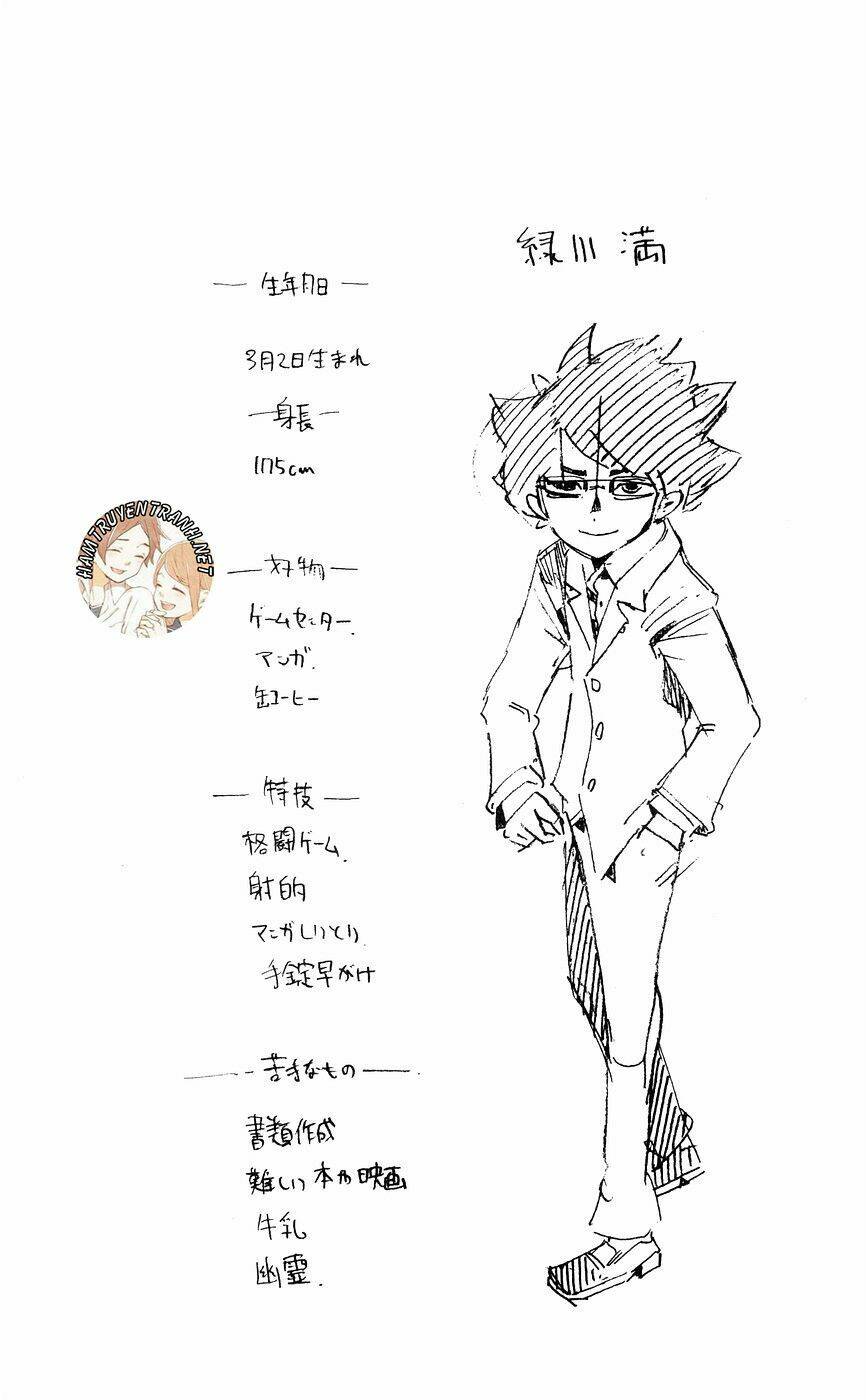 緑川 満
生年月日
3月2日生まれ
身長
175cm
好物
ゲームセンター
マンガ
缶コーヒー
特技
格闘ゲーム
射的
マンガしりとり
手錠早がけ
苦手なもの
書類作成
難しい本や映画
牛乳
幽霊
HAMTRUYENTRANH.NET